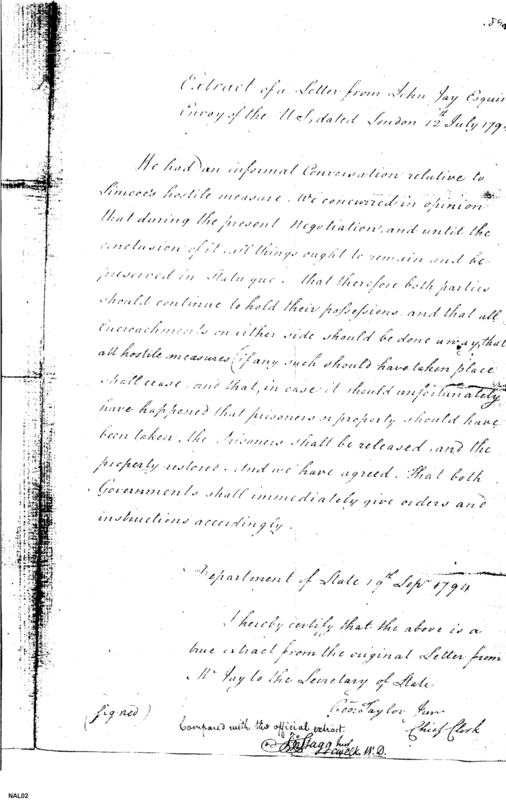 Extract of a Letter from John Jay Esquir
Envoy of the U S, dated London 12th July 179
He had an informal Conversation relative to
Simcoe's hostile measure. We concurred in opinion
that during the present Negotiation, and until the
conclusion of it, all things ought to remain and be
preserved in Statu quo. that therefore both parties
should continue to hold their possessions, and that all
Encroachments on either side should be done away, that
all hostile measures (if any such should have taken place
shall cease, and that, in case it should unfortunately
have happened that prisoners or property should have
been taken, the Prisoners shall be released, and the
property restored. And we have agreed. That both
Governments shall immediately give orders and
instructions accordingly.
Department of State 19th Sepr 1794
I hereby certify that the above is a
true extract from the original Letter from
Mr Jay to the Secretary of State
Geo: Taylor Junr
(signed)
Chief Clerk
Compared with the official extract.
Jno Stagg Junr
Ch Clk W. D.
NAL02